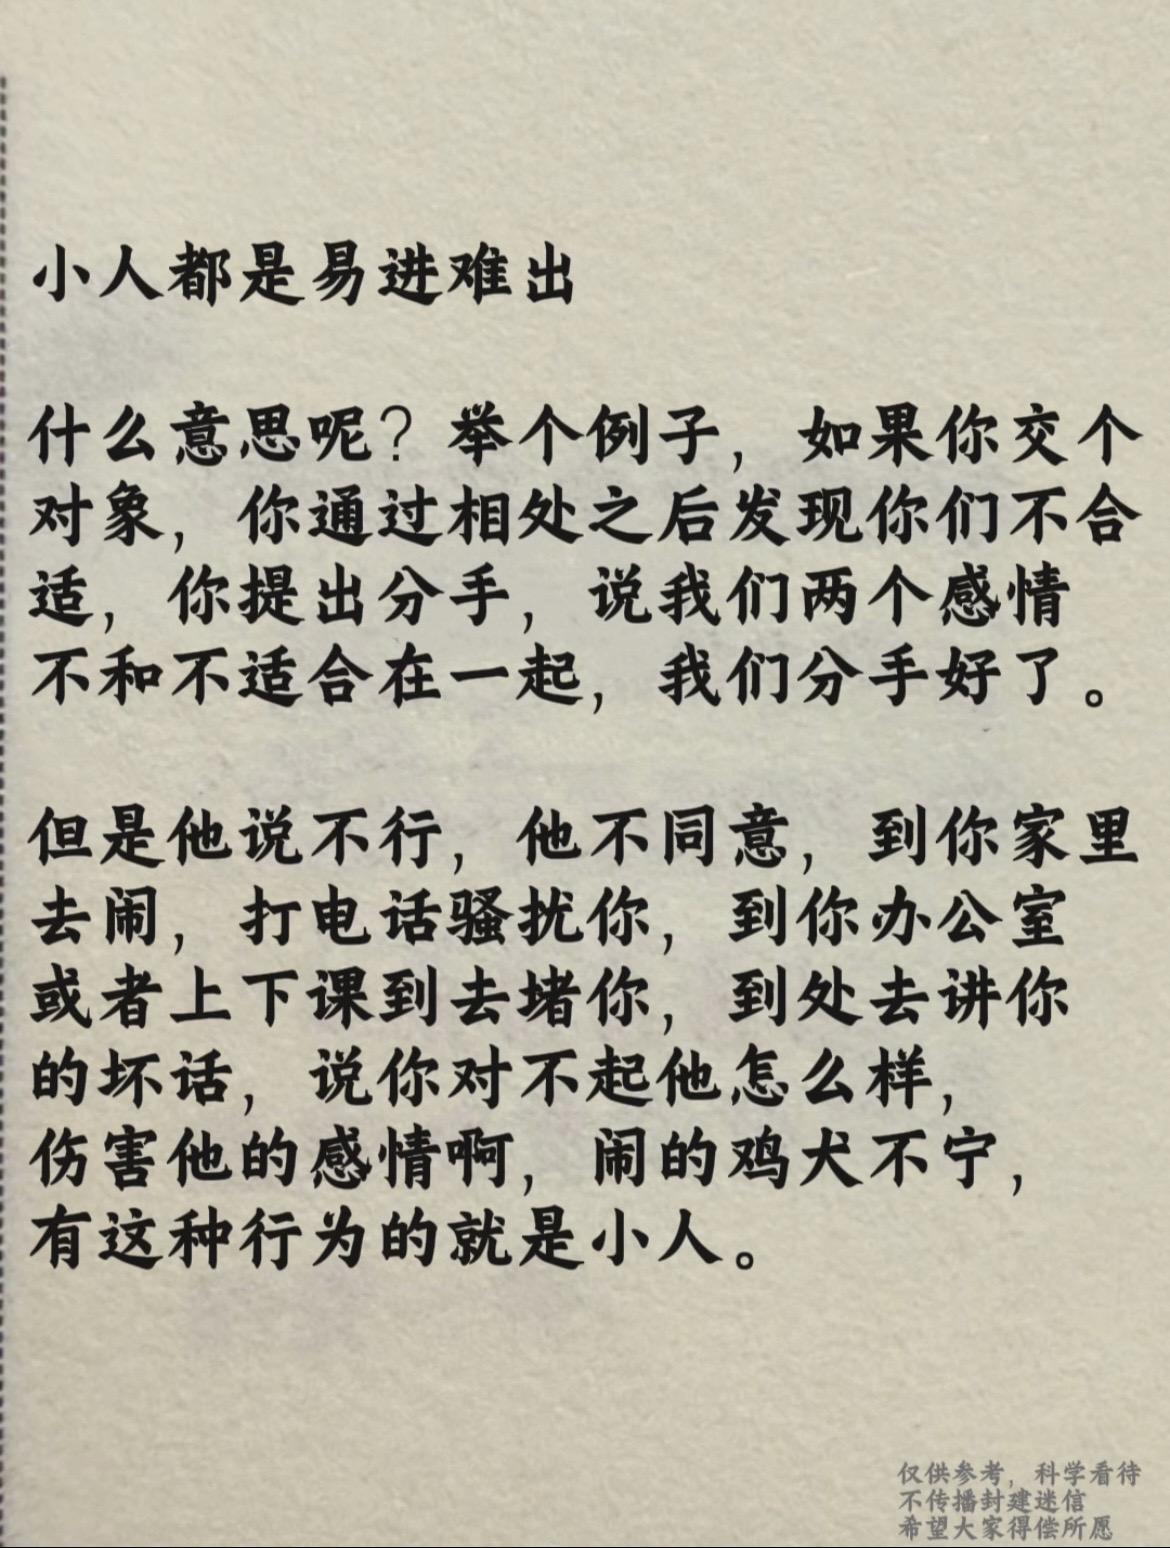 小人都是易进难出
什么意思呢？举个例子，如果你交个
对象，你通过相处之后发现你们不合
适，你提出分手，说我们两个感情
不和不适合在一起，我们分手好了。
但是他说不行，他不同意，到你家里
去闹，打电话骚扰你，到你办公室
或者上下课到去堵你，到处去讲你
的坏话，说你对不起他怎么样，
伤害他的感情啊，闹的鸡犬不宁，
有这种行为的就是小人。
仅供参考，科学看待
不传播封建迷信
希望大家得偿所愿